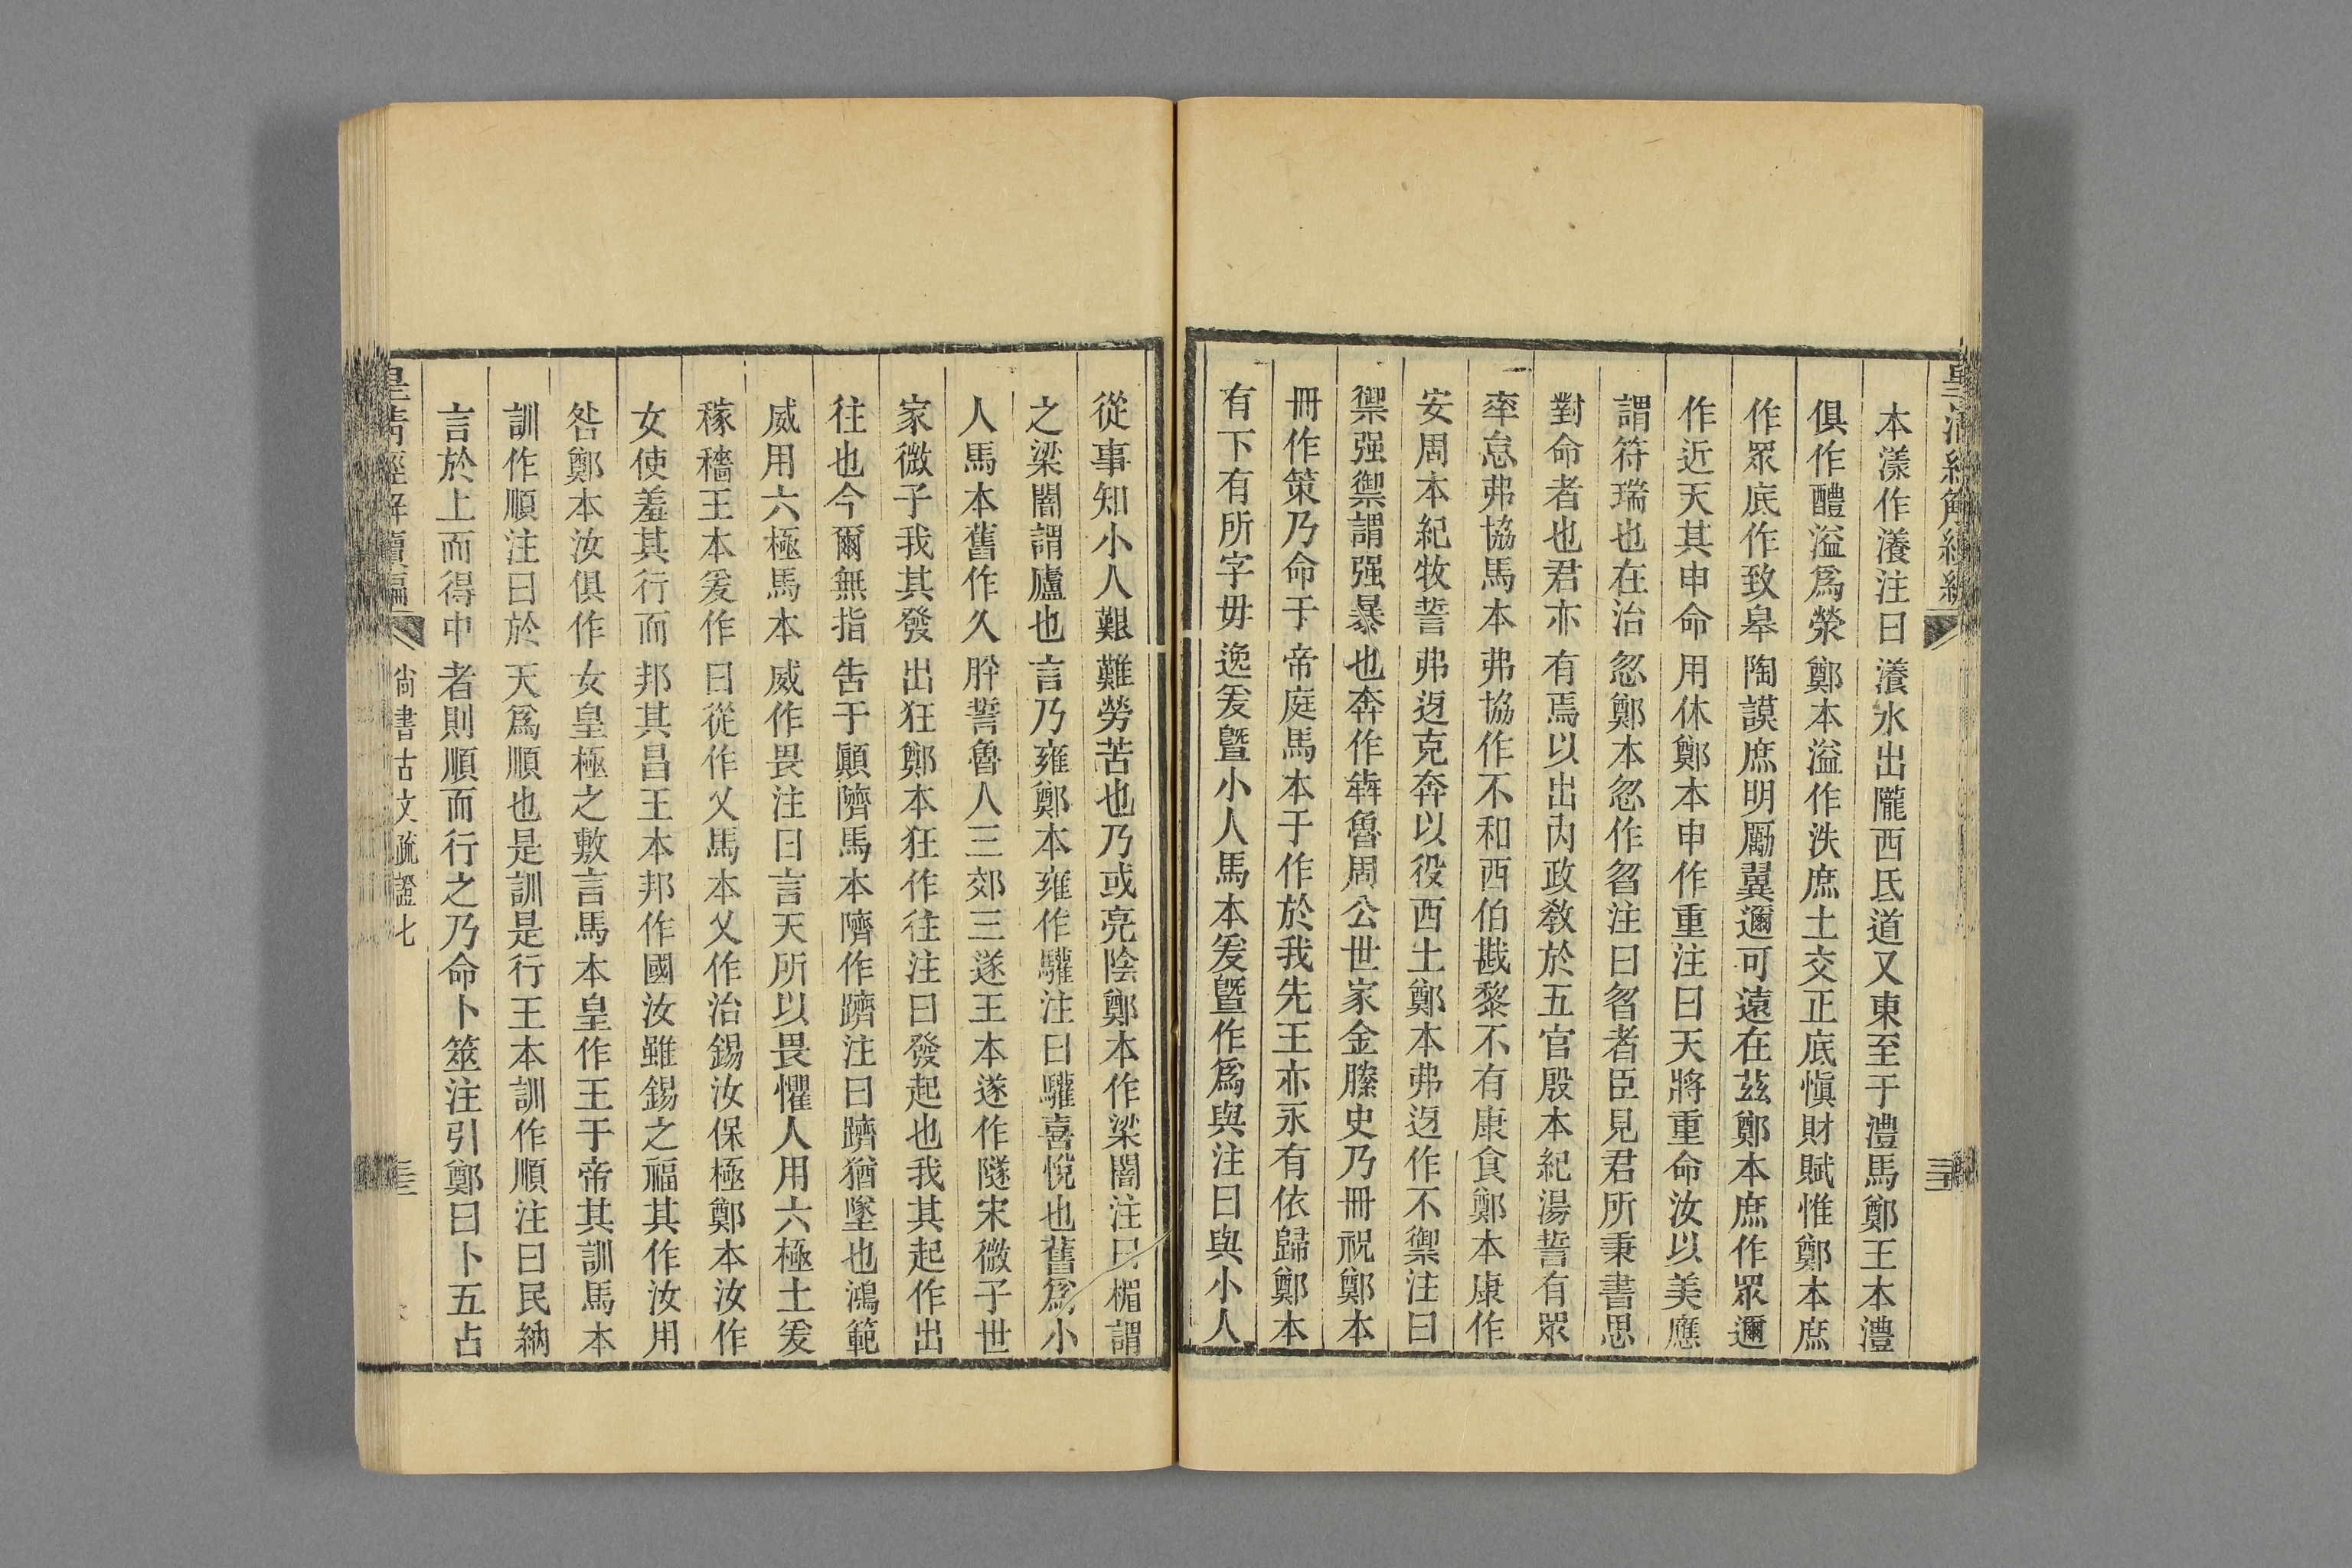 本漾作瀁注曰瀁水出隴西氐道又東至于澧馬鄭王本澧
俱作醴溢爲滎鄭本溢作泆庶土交正底愼財賦惟鄭本庶
作眾底作致皋陶謨庶明厲翼邇可遠在茲鄭本庶作眾邇
作近天其申命用休鄭本申作重注曰天將重命汝以美應
謂符瑞也在治忽鄭本忽作曶注曰曶者臣見君所秉書思
對命者也君亦有焉以出內政敎於五官殷本紀湯誓有眾
率怠弗協馬本弗協作不和西伯戡黎不有康食鄭本康作
安周本紀牧誓弗迓克奔以役西土鄭本弗迓作不禦注曰
禦强禦謂强暴也奔作犇魯周公世家金縢史乃冊祝鄭本
冊作策乃命于帝庭馬本于作於我先王亦永有依歸鄭本
有下有所字毋逸爰曁小人馬本爰曁作爲與注曰與小人
從事知小人艱難勞苦也乃或亮陰鄭本作梁闇注曰楣謂
之梁闇謂廬也言乃雍鄭本雍作驩注曰驩喜悅也舊爲小
人馬本舊作久肸誓魯人三郊三遂王本遂作隧宋微子世
家微子我其發出狂鄭本狂作往注曰發起也我其起作出
往也今爾無指告于顚隮馬本隮作躋注曰躋猶墜也鴻範
威用六極馬本威作畏注曰言天所以畏懼人用六極土爰
稼穡王本爰作曰從作乂馬本乂作治錫汝保極鄭本汝作
女使羞其行而邦其昌王本邦作國汝雖錫之福其作汝用
咎鄭本汝俱作女皇極之敷言馬本皇作王于帝其訓馬本
訓作順注曰於天爲順也是訓是行王本訓作順注曰民納
言於上而得中者則順而行之乃命卜筮注引鄭曰卜五占
皇淸經解續編 尙書古文疏證七